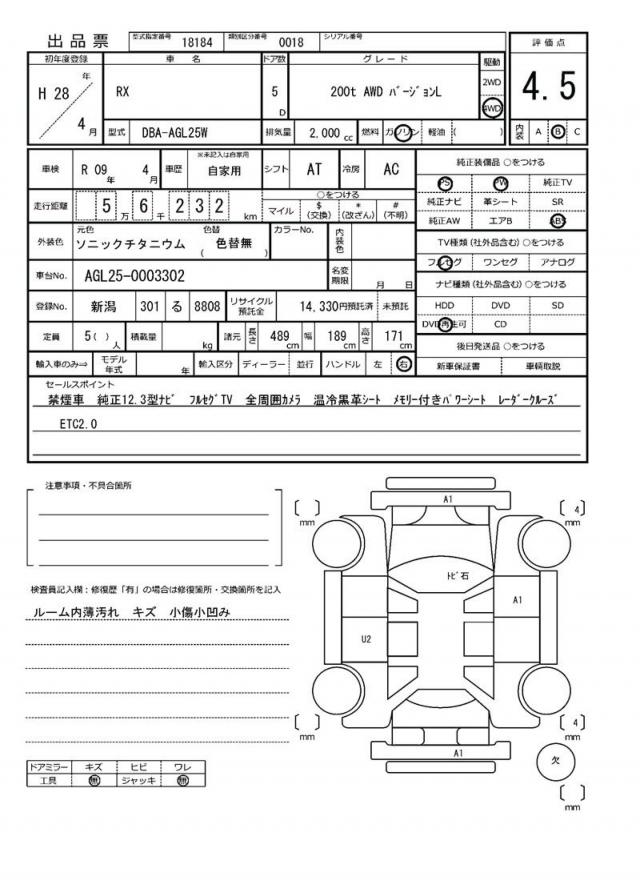 出品票 型式指定番号 18184 類別区分番号 0018 シリアル番号
評価点
4.5
内装 A B C
初年度登録 車名 ドア数 グレード 駆動
H 28 年 4 月 RX 5 D 200t AWD バージョンL 2WD 4WD
型式 DBA-AGL25W 排気量 2,000 cc 燃料 ガソリン 軽油 ( )
車検 R 09 年 4 月 車歴 ※未記入は自家用 自家用 シフト AT 冷房 AC
走行距離 5 万 6 千 2 3 2 km ○をつける
マイル $(交換) *(改ざん) #(不明)
外装色 元色 ソニックチタニウム 色替 ( 色替無 ) カラーNo. 内装色
車台No. AGL25-0003302 名変期限 月 日
登録No. 新潟 301 る 8808 リサイクル預託金 14,330円預託済 未預託
定員 5( ) 人 積載量 kg 諸元 長さ 489 cm 幅 189 cm 高さ 171 cm
輸入車のみ⇒ モデル年式 年 輸入区分 ディーラー 並行 ハンドル 左 右
純正装備品 ○をつける
PS PW 純正TV
純正ナビ 革シート SR
純正AW エアB ABS
TV種類(社外品含む)○をつける
フルセグ ワンセグ アナログ
ナビ種類(社外品含む)○をつける
HDD DVD SD
DVD再生可 CD
後日発送品 ○をつける
新車保証書 車輌取説
セールスポイント
禁煙車 純正12.3型ナビ フルセグTV 全周囲カメラ 温冷黒革シート メモリー付きパワーシート レーダークルーズ
ETC2.0
注意事項・不具合箇所
検査員記入欄:修復歴「有」の場合は修復箇所・交換箇所を記入
ルーム内薄汚れ キズ 小傷小凹み
ドアミラー キズ ヒビ ワレ
工具 無 ジャッキ 無
[ ] mm
A1
[ 4 ] mm
トビ石
A1
U2
[ ] mm
[ 4 ] mm
A1
欠
[ ] mm